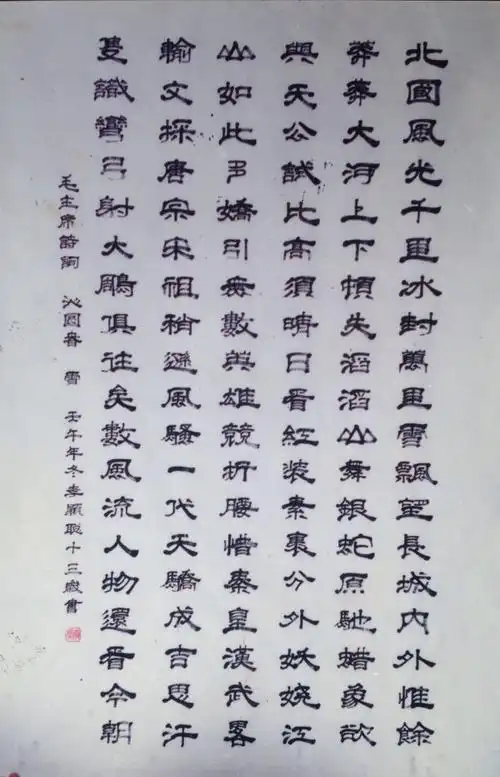 北國風光千里冰封萬里雪飄望長城内外惟餘
莽莽大河上下頓失滔滔山舞銀蛇原馳蜡象欲
與天公試比高須晴日看紅装素裹分外妖娆江
山如此多嬌引無數英雄競折腰惜秦皇漢武畧
輸文採唐宗宋祖稍遜風騷一代天驕成吉思汗
隻識彎弓射大鵰俱往矣數風流人物還看今朝
毛主席詩詞 沁園春 雪 壬午年冬李聪十三歲書